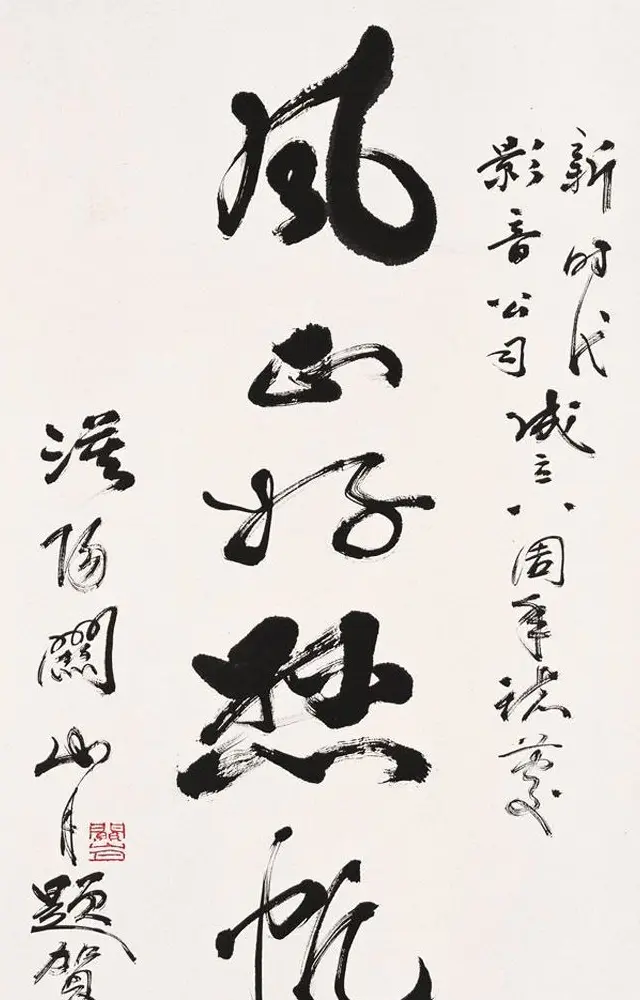 新时代
影音公司
成立八周年誌慶
风正好帆
漠陽關山月題賀